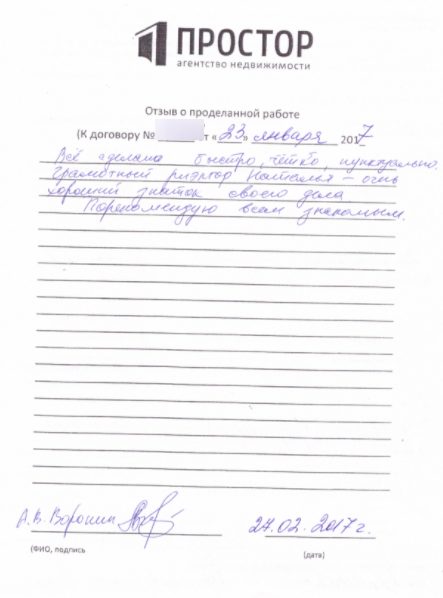 ПРОСТОР
агентство недвижимости
Отзыв о проделанной работе
(К договору № т «23» января 2017
Всё сделано быстро, чётко, пунктуально.
Грамотный риэлтор Наталья – очень
хороший знаток своего дела
Порекомендую всем знакомым.
А.В. Воронин 27.02.2017г.
(ФИО, подпись (дата)